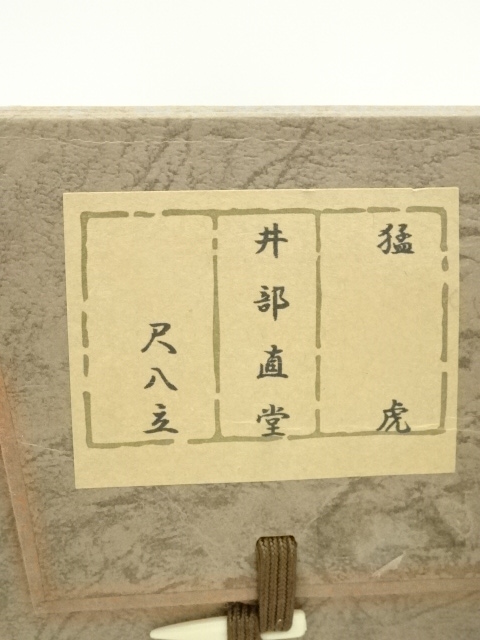 猛虎
井部直堂
尺八立